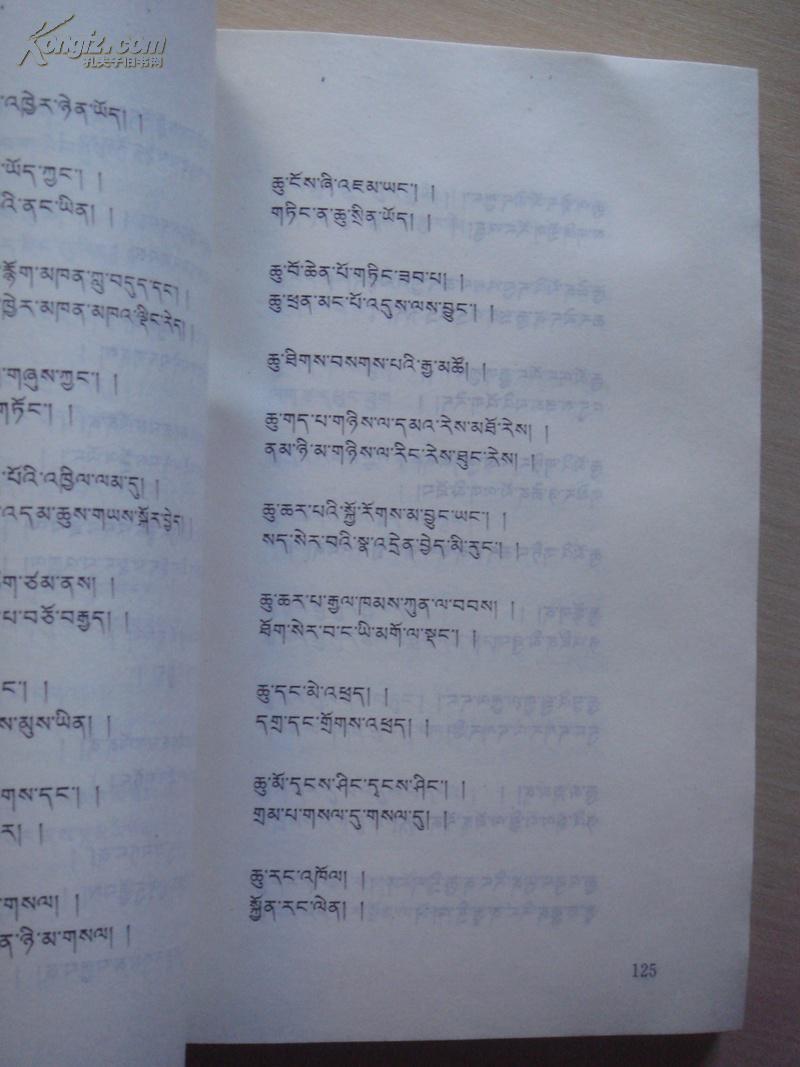 Kongfz.com
孔夫子旧书网
འཁྱེར་ཉེན་ཡོད། །
ཡོད་ཀྱང་། །
འི་ནང་ཡིན། །
རྩོག་མཁན་ཀླུ་བདུད་དང་།
ཁྱེར་མཁན་མཁའ་ལྡིང་རེད།
གཞུས་ཀྱང་། །
གཏོང་། །
པོའི་འཁྱིལ་ལམ་དུ།
འདམ་ཆུས་གཡས་སྐོར་བྱེད།
ཙམ་ནས། །
པ་བཅོ་བརྒྱད། །
ང་། །
ས་མུས་ཡིན། །
གས་དང་། །
ར། །
གསལ། །
ན་ཉི་མ་གསལ། །
ཆུ་ངོས་ཞི་འཇམ་ཡང་། །
གཏིང་ན་ཆུ་སྲིན་ཡོད། །
ཆུ་བོ་ཆེན་པོ་གཏིང་ཟབ་པ། །
ཆུ་ཕྲན་མང་པོ་འདུས་ལས་བྱུང་། །
ཆུ་ཐིགས་བསགས་པའི་རྒྱ་མཚོ། །
ཆུ་གད་པ་གཉིས་ལ་དམའ་རེས་མཐོ་རེས། །
ནམ་ཉི་མ་གཉིས་ལ་རིང་རེས་ཐུང་རེས། །
ཆུ་ཆར་པའི་སྐྱོ་རོགས་མ་བྱུང་ཡང་། །
སད་སེར་བའི་སྣ་འདྲེན་བྱེད་མི་རུང་། །
ཆུ་ཆར་པ་རྒྱལ་ཁམས་ཀུན་ལ་བབས། །
ཐོག་སེར་བ་ང་ཡི་མགོ་ལ་སྡང་། །
ཆུ་དང་མེ་འཕྲད། །
དགྲ་དང་གྲོགས་འཕྲད། །
ཆུ་མོ་དྭངས་ཤིང་དྭངས་ཤིང་། །
གྲམ་པ་གསལ་དུ་གསལ་དུ། །
ཆུ་རང་འཁོལ། །
སྐྱོན་རང་ལེན། །
125